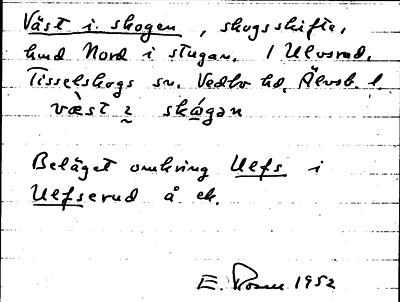 Väst i skogen, skogsskifte,
hmd Nord i stugan, 1 Ulvsrud,
Tisselskogs sn, Vedbo hd, Älvsb. l.
væ̀st i skógan
Beläget omkring Ulfs i
Ulfserud å ek.
E. 1952